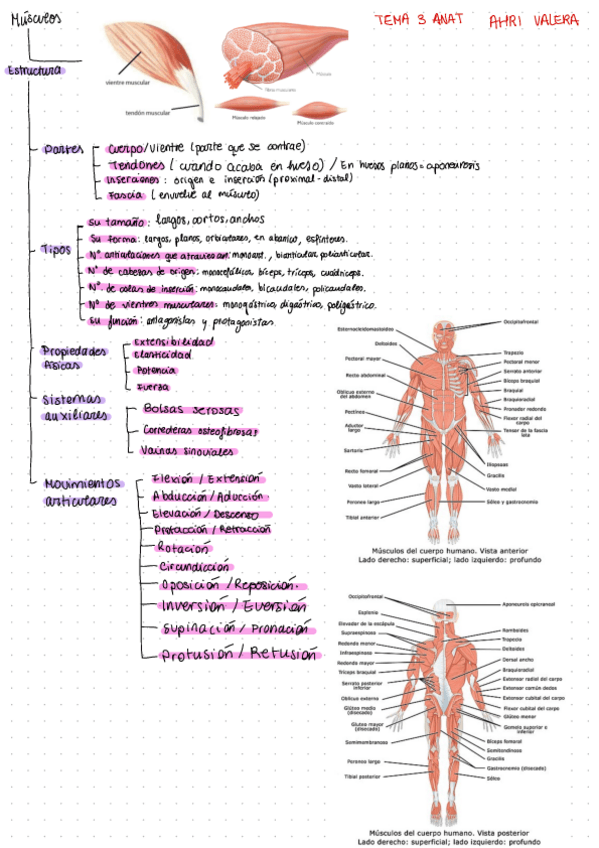 Músculos
TEMA 3 ANAT AHRI VALERA
Estructura
vientre muscular
tendón muscular
Músculo
Fibra muscular
Músculo relajado
Músculo contraído
Partes
Cuerpo/Vientre (parte que se contrae)
Tendones (cuando acaba en hueso) / En huesos planos = aponeurosis
Inserciones: origen e inserción (proximal-distal)
Fascia (envuelve al músculo)
Tipos
Su tamaño: largos, cortos, anchos
Su forma: largos, planos, orbiculares, en abanico, esfínteres.
Nº articulaciones que atraviesan: monoart., biarticular, poliarticular.
Nº de cabezas de origen: monocefálicos, bíceps, tríceps, cuádriceps.
Nº de colas de inserción: monocaudales, bicaudales, policaudales.
Nº de vientres musculares: monogástrico, digástrico, poligástrico.
Su función: antagonistas y protagonistas.
Propiedades físicas
Extensibilidad
Elasticidad
Potencia
Fuerza
Sistemas auxiliares
Bolsas serosas
Correderas osteofibrosas
Vainas sinoviales
Movimientos articulares
Flexión / Extensión
Abducción / Aducción
Elevación / Descenso
Protacción / Retracción
Rotación
Circundicción
Oposición / Reposición.
Inversión / Eversión
Supinación / Pronación
Protusión / Retusión
Occipitofrontal
Esternocleidomastoideo
Deltoides
Pectoral mayor
Recto abdominal
Oblicuo externo del abdomen
Pectíneo
Aductor largo
Sartorio
Recto femoral
Vasto lateral
Peroneo largo
Tibial anterior
Trapecio
Pectoral menor
Serrato anterior
Bíceps braquial
Braquial
Braquioradial
Pronador redondo
Flexor radial del carpo
Tensor de la fascia lata
Iliopsoas
Gracilis
Vasto medial
Sóleo y gastrocnemio
Músculos del cuerpo humano. Vista anterior
Lado derecho: superficial; lado izquierdo: profundo
Occipitofrontal
Esplenio
Elevador de la escápula
Supraespinoso
Redondo menor
Infraespinoso
Redondo mayor
Tríceps braquial
Serrato posterior inferior
Oblicuo externo
Glúteo medio (disecado)
Glúteo mayor (disecado)
Semimembranoso
Peroneo largo
Tibial posterior
Aponeurosis epicraneal
Romboides
Trapecio
Deltoides
Dorsal ancho
Braquioradial
Extensor radial del carpo
Extensor común dedos
Extensor cubital del carpo
Flexor cubital del carpo
Glúteo menor
Gemelo superior e inferior
Bíceps femoral
Semitendinoso
Gracilis
Gastrocnemio (disecado)
Sóleo
Músculos del cuerpo humano. Vista posterior
Lado derecho: superficial; lado izquierdo: profundo